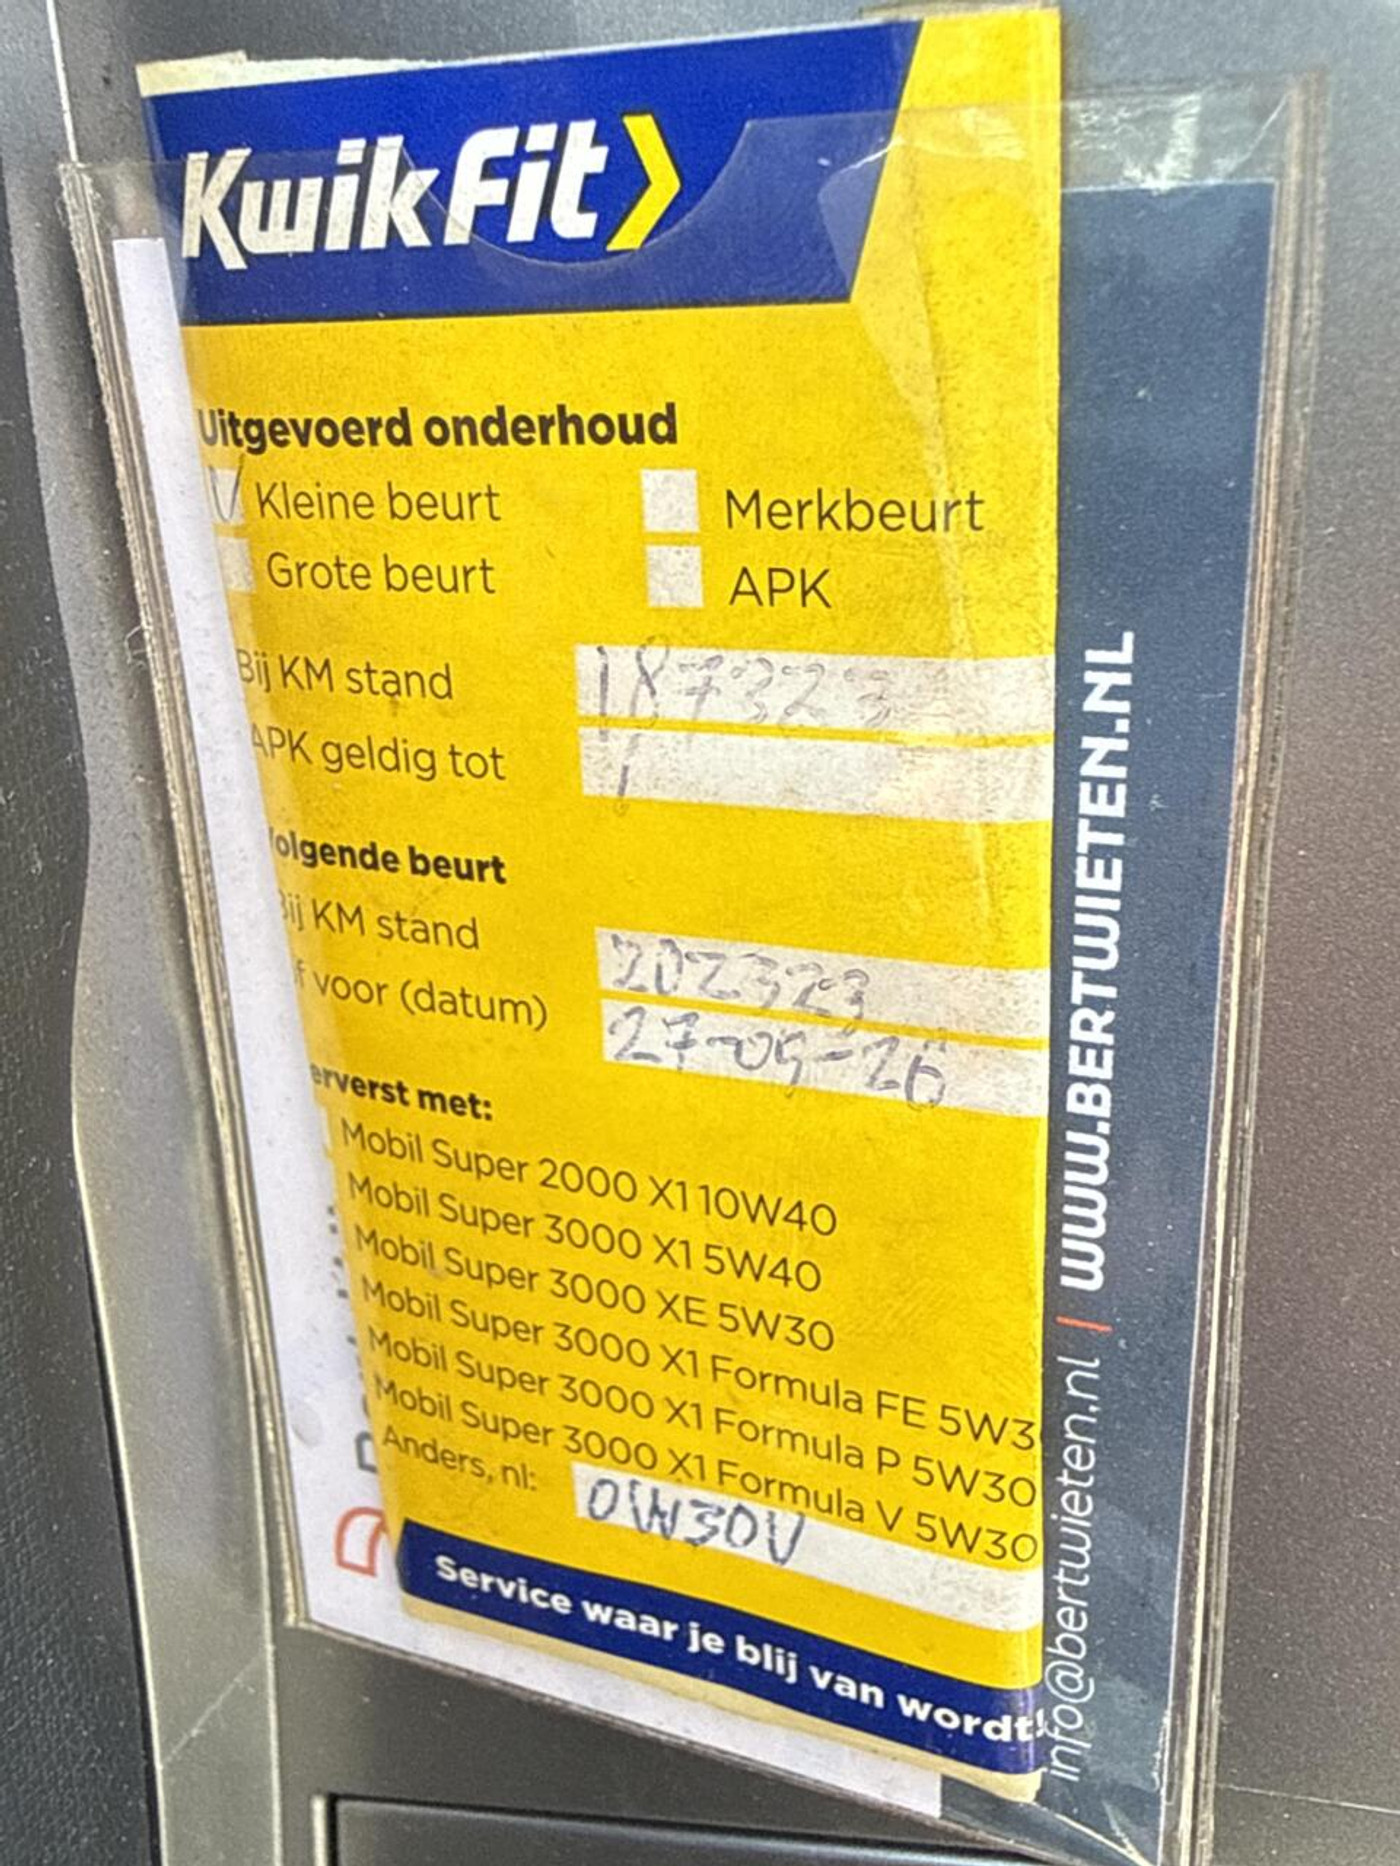 KwikFit
Uitgevoerd onderhoud
Kleine beurt
Merkbeurt
Grote beurt
APK
Bij KM stand 187323
APK geldig tot /
olgende beurt
Bij KM stand 202323
f voor (datum) 27-09-26
erverst met:
Mobil Super 2000 X1 10W40
Mobil Super 3000 X1 5W40
Mobil Super 3000 XE 5W30
Mobil Super 3000 X1 Formula FE 5W3
Mobil Super 3000 X1 Formula P 5W30
Mobil Super 3000 X1 Formula V 5W30
Anders, nl: 0W30V
Service waar je blij van wordt!
info@bertwieten.nl | WWW.BERTWIETEN.NL